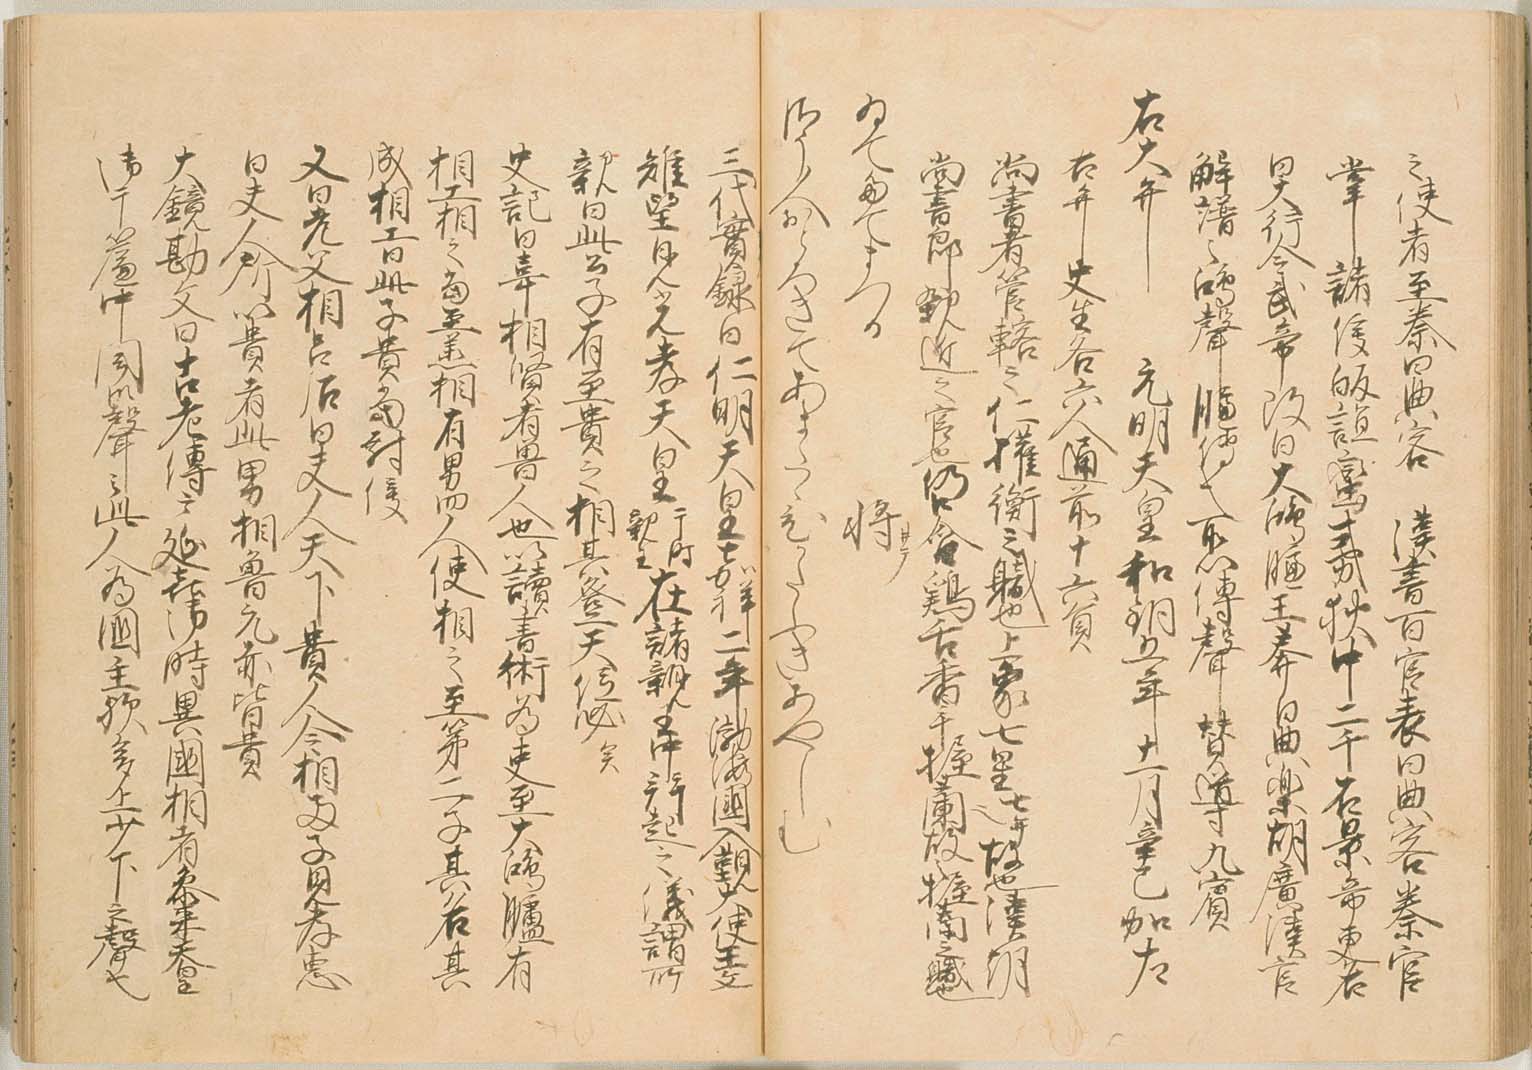 之使者至秦曰典客　漢書百官表曰典客秦官
掌諸侯歸誼蠻夷狄中二千石景帝更名
曰大行令武帝改曰大鴻臚王莽曰典楽胡廣漢官
解譜云鴻聲臚傳也所以傳聲賛導九賓
右大弁　元明天皇和銅五年十一月辛巳加左
右弁史生各六人通前十六員
尚書者管轄之仁權衡之職也上象七星七弁故也漢朝
尚書郎親近之官也仍口含鶏舌香手握蘭故握蘭之職也
ゐてたてまつる　将
みて
おとろきてあまたゝひかたふきあやしむ
三代實録曰仁明天皇嘉祥二年渤海國入覲大使王文
矩望見光孝天皇于時親王在諸親王中拝起之儀謂所
親曰此公子有至貴之相其登天位必矣
史記曰韋相賢者魯人也以讀書術為吏至大鴻臚有
相工相之當至丞相有男四人使相之至第二子其名其
成相工曰此子貴當封侯
又曰老父相呂后曰夫人天下貴人令相两子見孝恵
曰夫人所以貴者此男相魯元亦皆貴
大鏡勘文曰古老傳云延喜御時異國相者参来天皇
御于簾中聞御聲云此人為國主歟多上少下之聲也